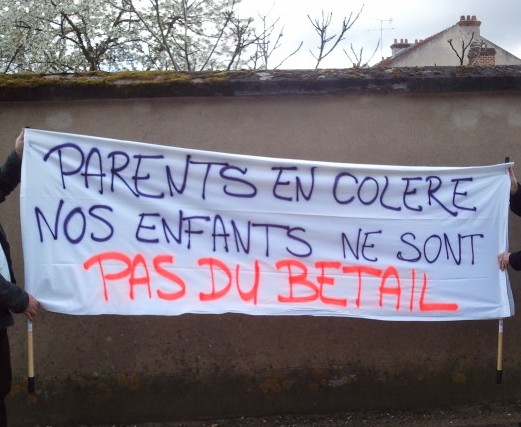 PARENTS EN COLERE
NOS ENFANTS NE SONT
PAS DU BETAIL